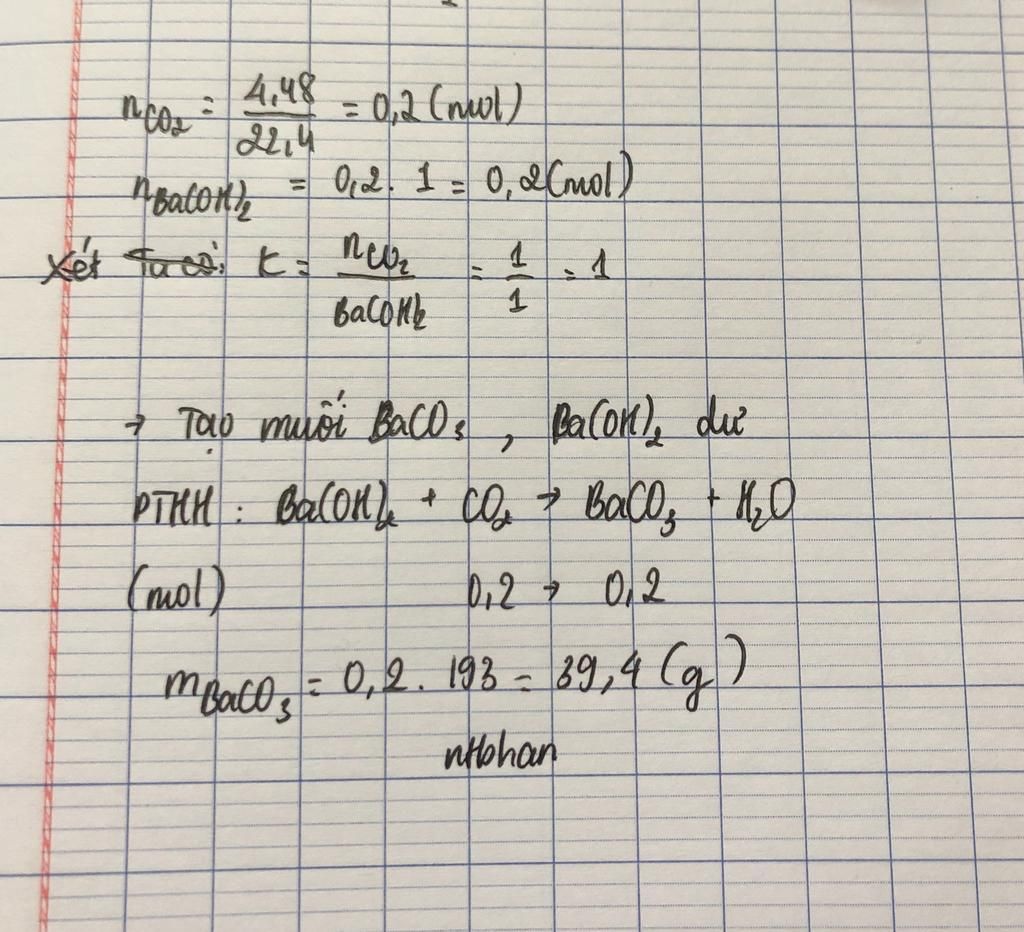 nCO₂ = 4,48/22,4 = 0,2 (mol)
nBa(OH)₂ = 0,2. 1 = 0,2 (mol)
Xét Ta có: K = nCO₂/Ba(OH)₂ = 1/1 = 1
→ Tạo muối BaCO₃, Ba(OH)₂ dư
PTHH: Ba(OH)₂ + CO₂ → BaCO₃ + H₂O
(mol) 0,2 → 0,2
mBaCO₃ = 0,2. 193 = 39,4 (g)